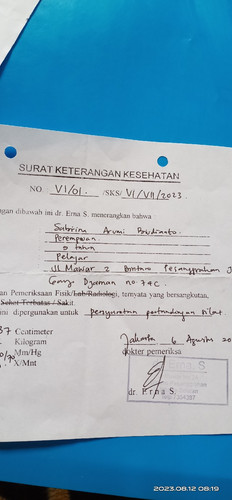 SURAT KETERANGAN KESEHATAN
NO. VI/01. /SKS/ VI/VII/2023.
ngan dibawah ini dr. Erna S. menerangkan bahwa
Sabrina Arumi
Perempuan
tahun
Pelajar
Jl Mawar 2 Bintaro Pesanggrahan J
Gang no. 74C.
an Pemeriksaan Fisik/Lab/Radiologi, ternyata yang bersangkutan,
Sehat Terbatas / Sakit.
ini dipergunakan untuk persyaratan pertandingan silat
37 Centimeter
Kilogram
/70 Mm/Hg
X/Mnt
Jakarta 6 Agustus 20
dokter pemeriksa
dr. Erna S.
2023.08.12 08:19